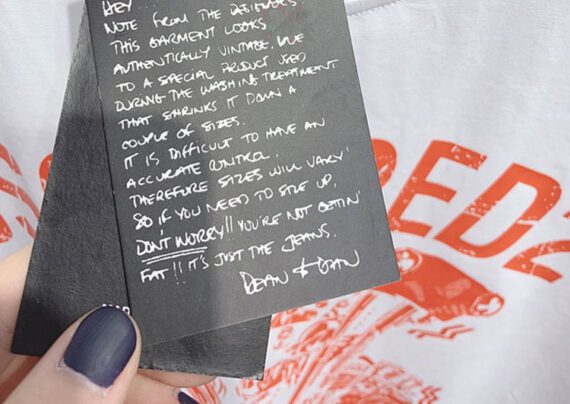 HEY...
NOTE FROM THE DESIGNERS
THIS GARMENT LOOKS
AUTHENTICALLY VINTAGE, DUE
TO A SPECIAL PRODUCT USED
DURING THE WASHING TREATMENT
THAT SHRINKS IT DOWN A
COUPLE OF SIZES.
IT IS DIFFICULT TO HAVE AN
ACCURATE CONTROL.
THEREFORE SIZES WILL VARY
SO, IF YOU NEED TO SIZE UP,
DON'T WORRY!! YOU'RE NOT GETTIN'
FAT!! IT'S JUST THE JEANS.
DEAN & DAN
RED2